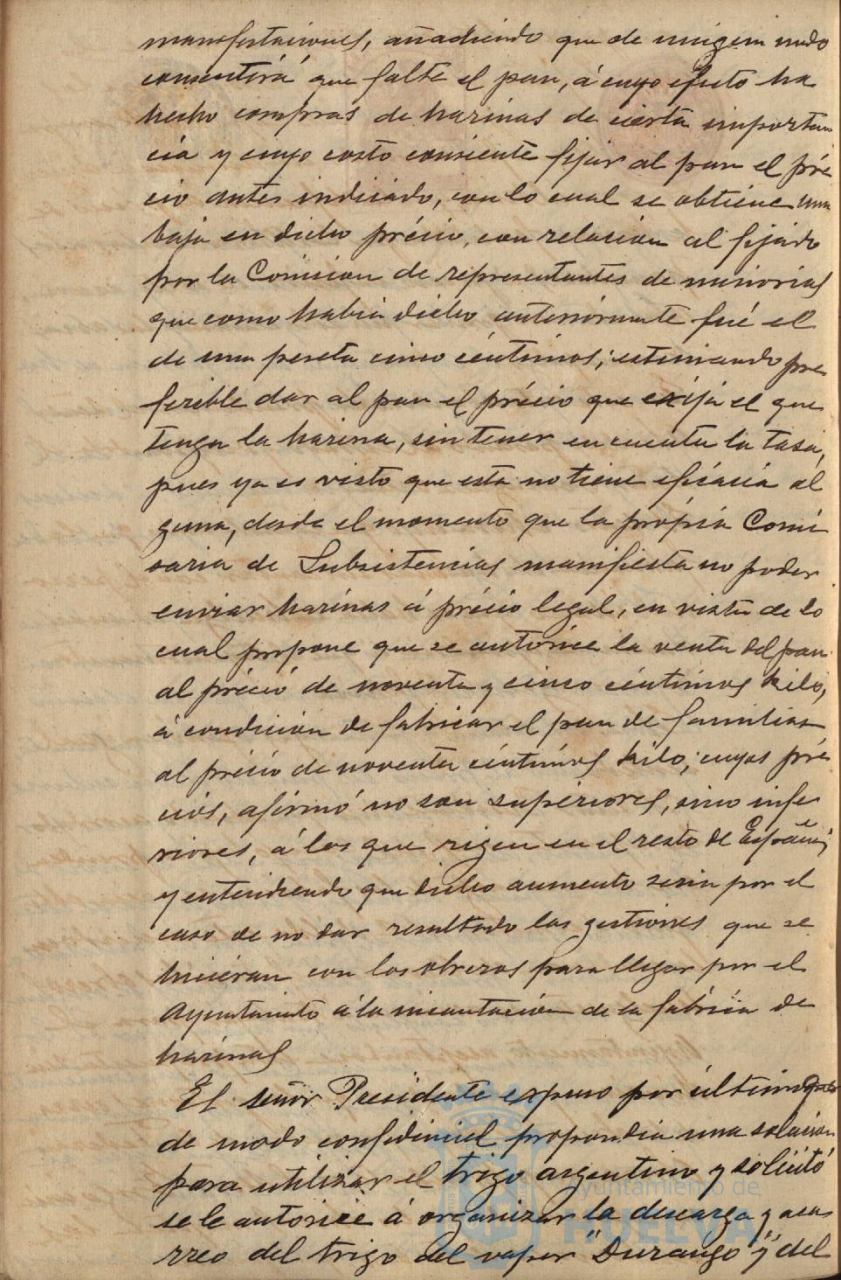 manifestaciones, añadiendo que de ningun modo
consentirá que falte el pan, á cuyo efecto ha
hecho compras de harinas de cierta importan
cia y cuyo costo consiente fijar al pan el pré
cio antes indicado, con lo cual se obtiene una
baja en dicho précio, con relacion al fijado
por la Comision de representantes de minorias
que como habia dicho anteriormente fué el
de una peseta cinco céntimos; estimando pre
ferible dar al pan el précio que exija el que
tenga la harina, sin tener en cuenta la tasa,
pues ya es visto que esta no tiene eficacia al
guna, desde el momento que la própia Comi
saria de Subsistencias manifiesta no poder
enviar harinas á précio legal, en vista de lo
cual propone que se autorice la venta del pan
al précio de noventa y cinco céntimos kilo,
á condicion de fabricar el pan de familias
al précio de noventa céntimos kilo; cuyos pré
cios, afirmó no son superiores, sino infe
riores, á los que rigen en el resto de España;
y entendiendo que dicho aumento seria por el
caso de no dar resultado las gestiones que se
hicieran con los obreros para llegar por el
Ayuntamiento á la incautacion de la fabrica de
harinas
El señor Presidente expuso por último que
de modo confidencial propondria una solucion
para utilizar el trigo argentino y solicitó
se le autorice á organizar la descarga y aca
rreo del trigo del vapor "Durango" y del
Ayuntamiento de
HUELVA